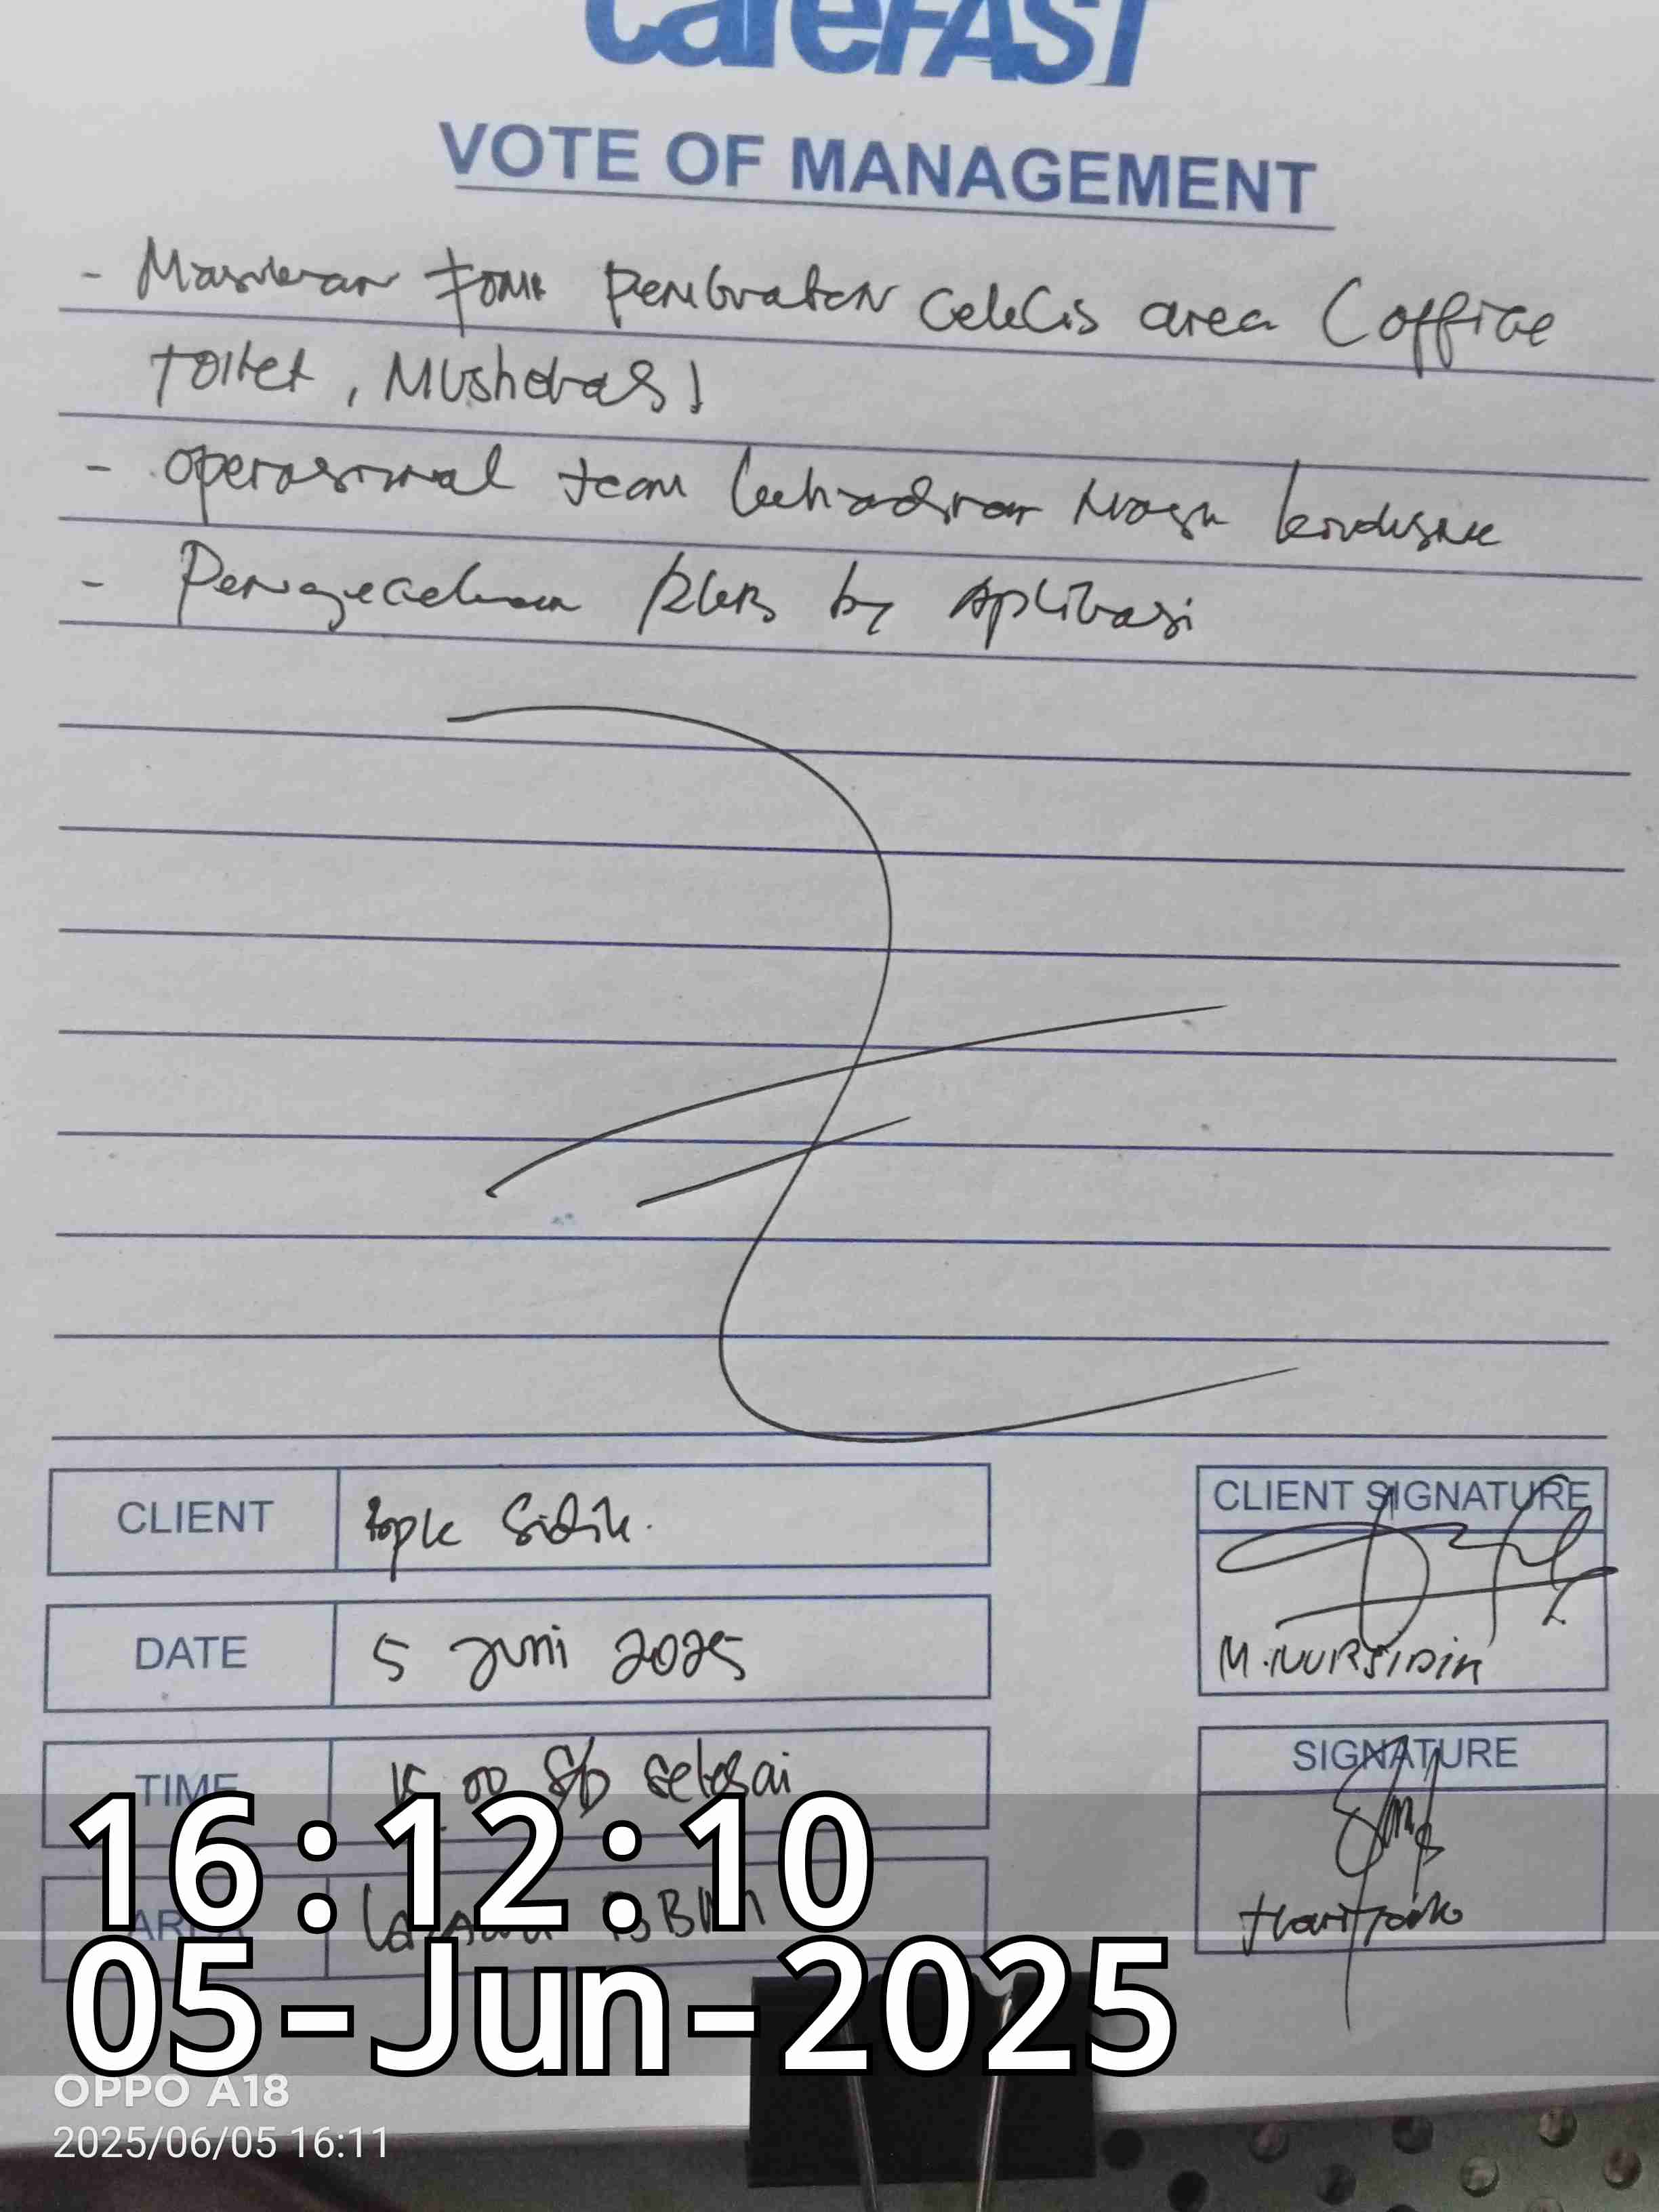 CareFAST
VOTE OF MANAGEMENT
- Masukan Form Pembuatan Ceklis area (office
toilet, Musholas)
- operasional team kehadiran Masih kondusif
- Pengecekan RKB by Aplikasi
CLIENT Bpk Sidik.
DATE 5 Juni 2025
TIME 15 00 S/D Selesai
AREA
CLIENT SIGNATURE
M. NURSIDIK
SIGNATURE
16:12:10
05-Jun-2025
OPPO A18
2025/06/05 16:11